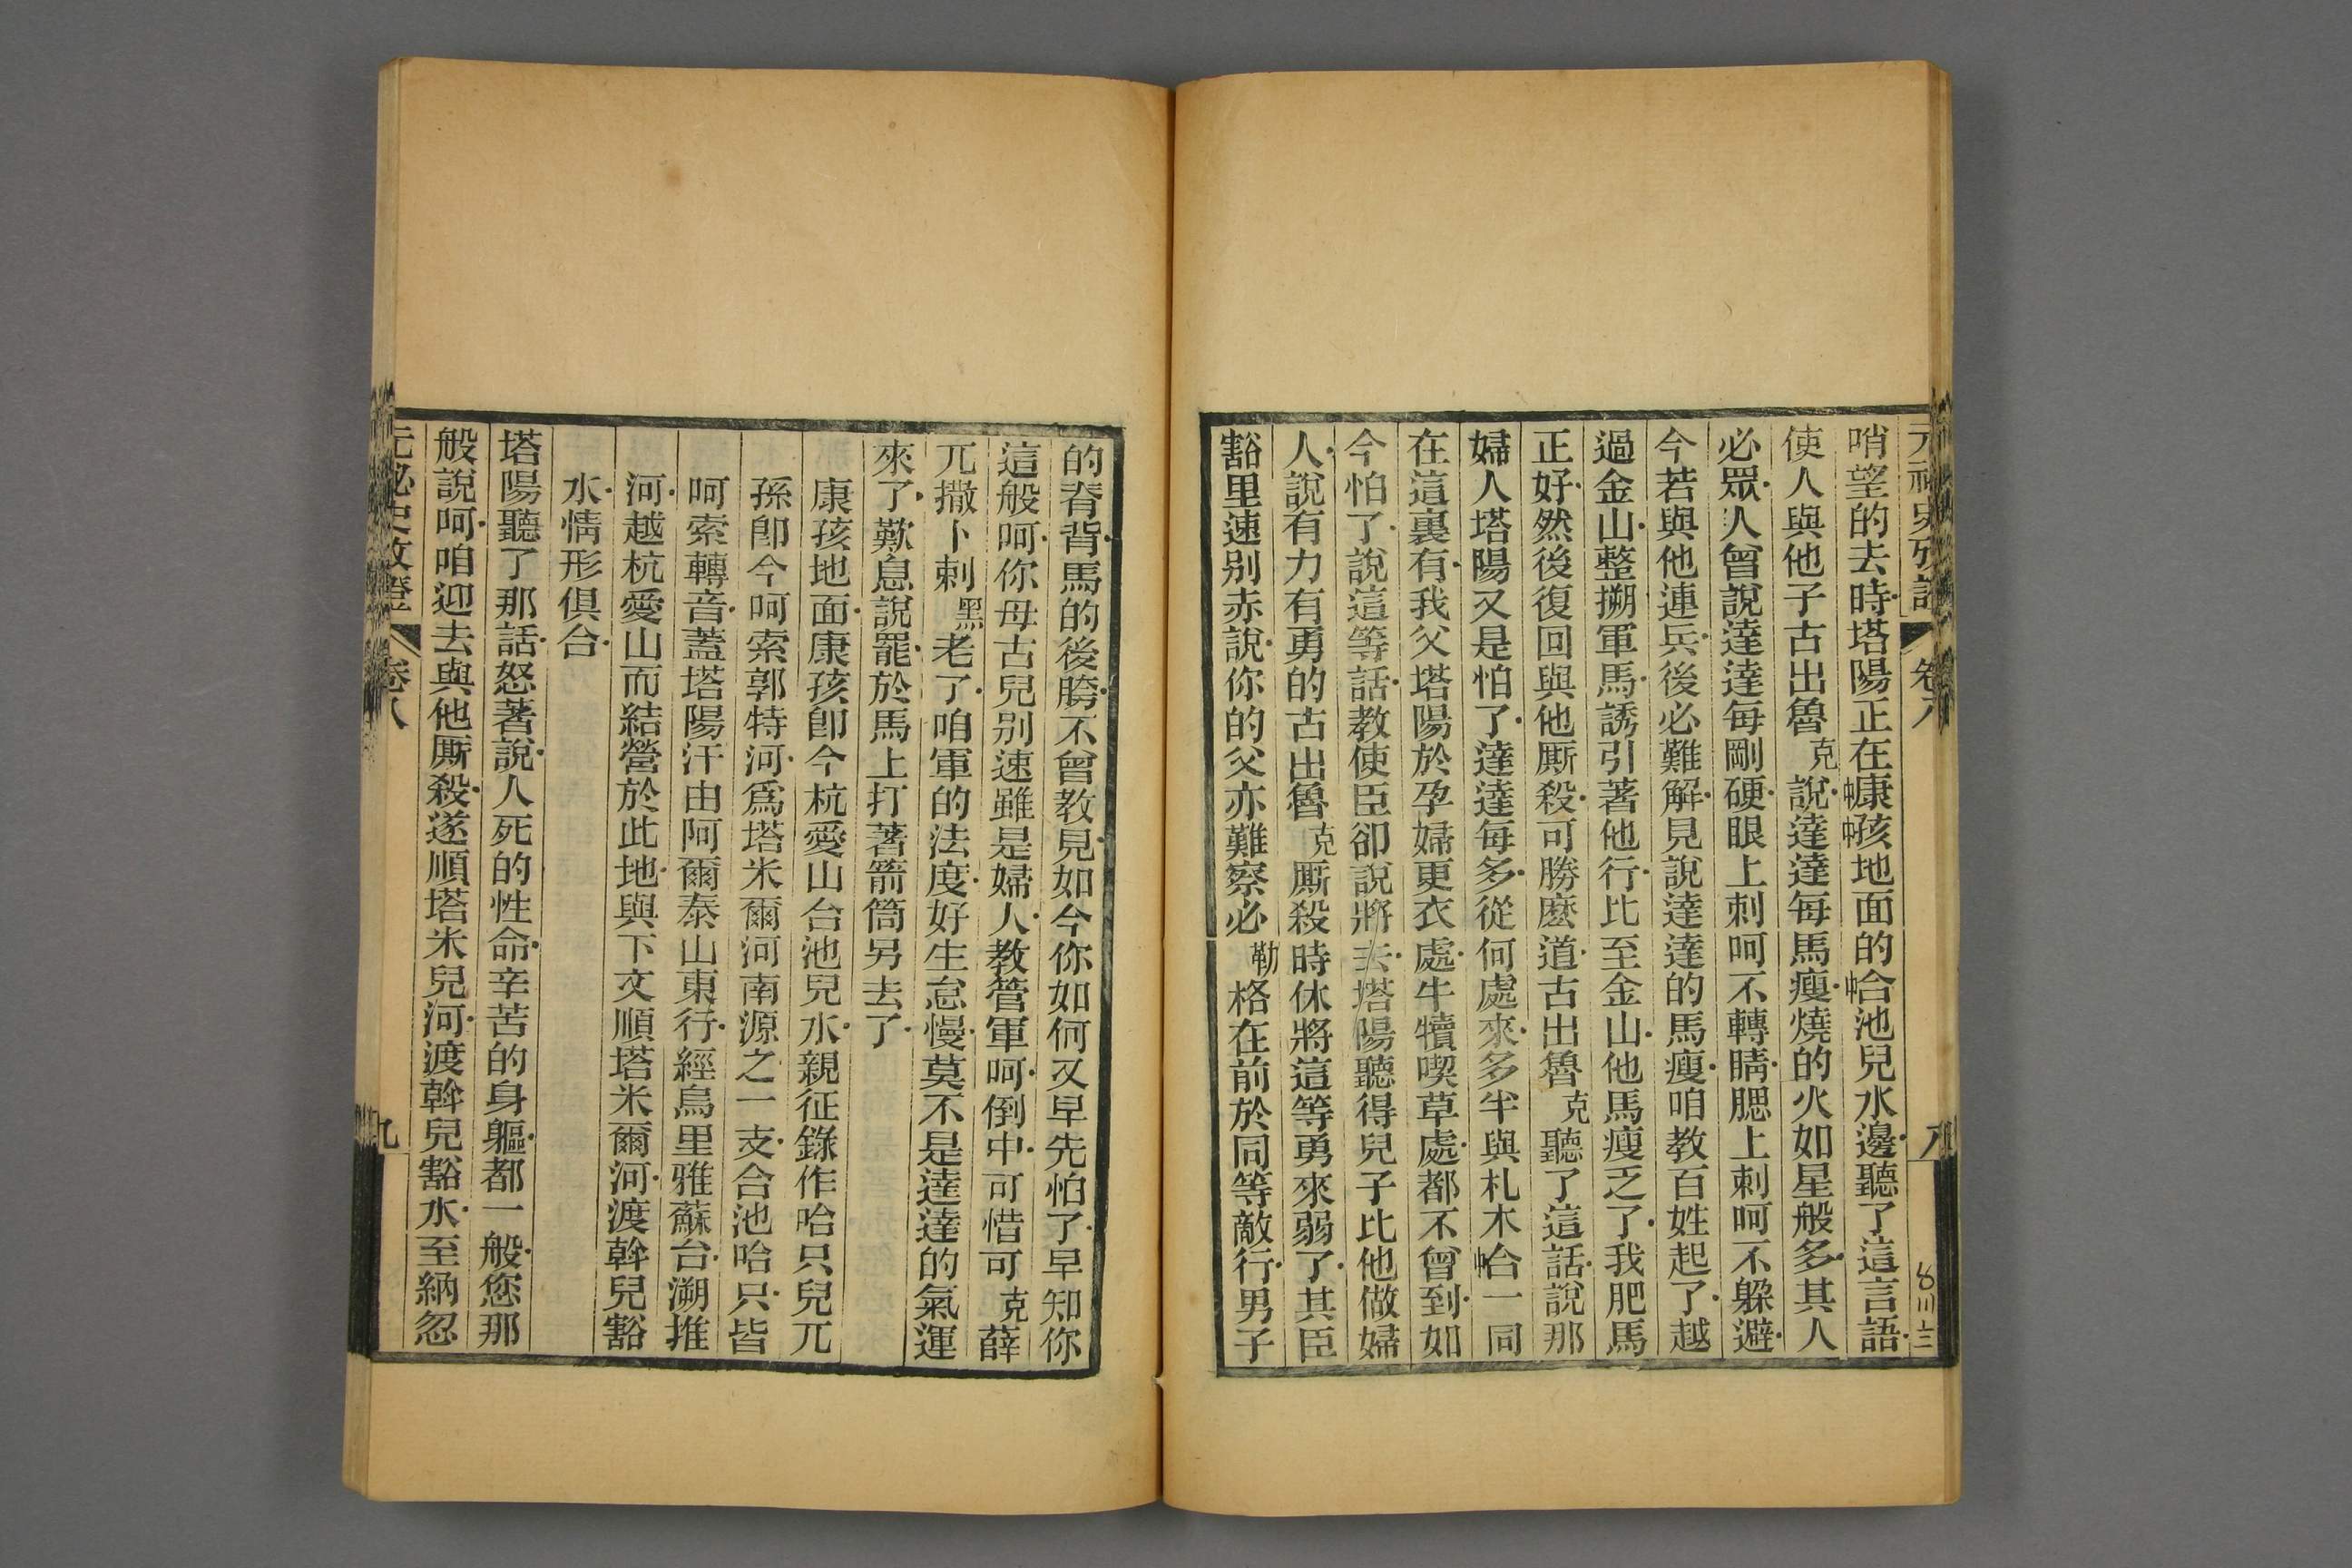 元祕史攷證 卷八 八
哨望的去時塔陽正在中康中孩地面的中合池兒水邊聽了這言語
使人與他子古出魯克說達達每馬瘦燒的火如星般多其人
必眾人曾說達達每剛硬眼上刺呵不轉睛腮上刺呵不躲避
今若與他連兵後必難解見說達達的馬瘦咱教百姓起了越
過金山整搠軍馬誘引著他行比至金山他馬瘦乏了我肥馬
正好然後復回與他厮殺可勝麽道古出魯克聽了這話說那
婦人塔陽又是怕了達達每多從何處來多半與札木中合一同
在這裏有我父塔陽於孕婦更衣處牛犢喫草處都不曾到如
今怕了說這等話教使臣卻說將去塔陽聽得兒子比他做婦
人說有力有勇的古出魯克厮殺時休將這等勇來弱了其臣
豁里速别赤說你的父亦難察必勒格在前於同等敵行男子
的脊背馬的後胯不曾教見如今你如何又早先怕了早知你
這般呵你母古兒别速雖是婦人教管軍呵倒中可惜可克薛
兀撒卜剌黑老了咱軍的法度好生怠慢莫不是達達的氣運
來了歎息說罷於馬上打著箭筒另去了
康孩地面康孩卽今杭愛山合池兒水親征錄作哈只兒兀
孫卽今呵索郭特河爲塔米爾河南源之一支合池哈只皆
呵索轉音蓋塔陽汗由阿爾泰山東行經烏里雅蘇台溯推
河越杭愛山而結營於此地與下文順塔米爾河渡斡兒豁
水情形俱合
塔陽聽了那話怒著說人死的性命辛苦的身軀都一般您那
般說呵咱迎去與他厮殺遂順塔米兒河渡斡兒豁水至納忽
元祕史攷證 卷八 九